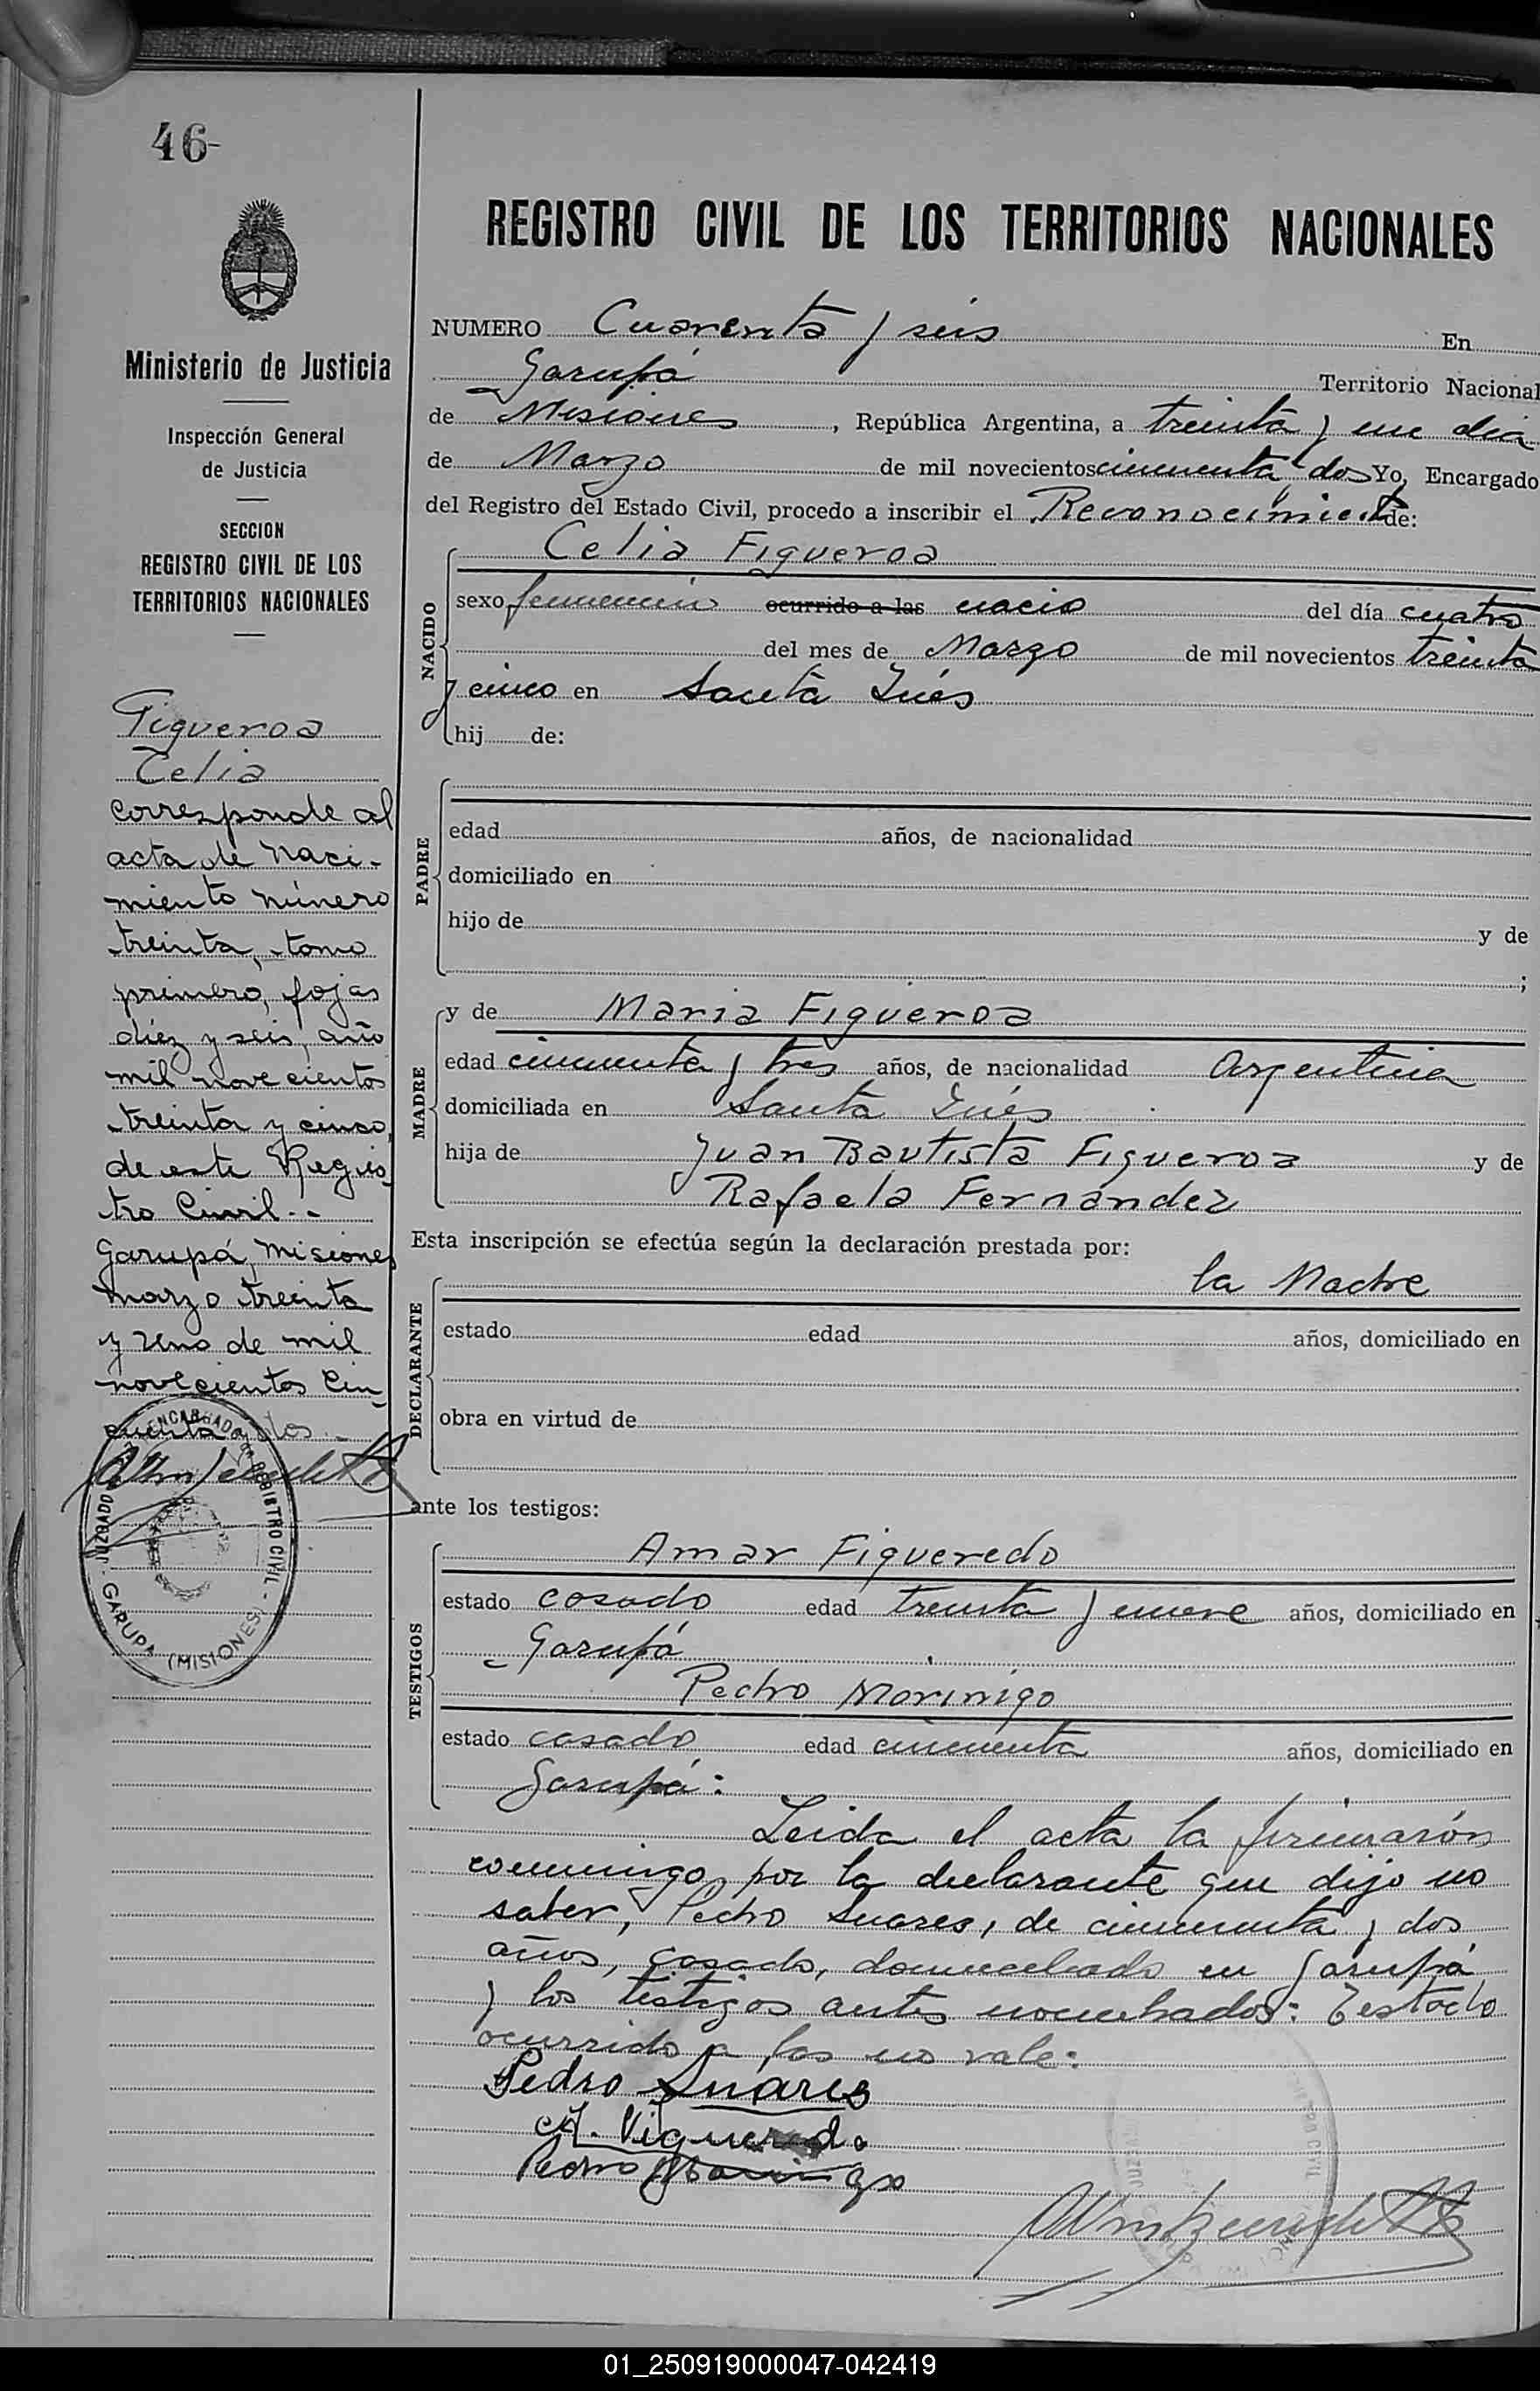 46-
Ministerio de Justicia
Inspección General
de Justicia
SECCION
REGISTRO CIVIL DE LOS
TERRITORIOS NACIONALES
Figueroa
Celia
corresponde al
acta de naci-
miento número
treinta, tomo
primero, fojas
diez y seis, año
mil novecientos
treinta y cinco,
de este Regis
tro Civil.-
Garupá, Misiones
marzo treinta
y uno de mil
novecientos cin
cuenta y dos.-
JUZGADO ENCARGADO REGISTRO CIVIL - GARUPA (MISIONES)
REGISTRO CIVIL DE LOS TERRITORIOS NACIONALES
NUMERO Cuarenta y seis En
Garupá Territorio Nacional
de Misiones, República Argentina, a treinta y un dia
de Marzo de mil novecientos cincuenta y dos Yo, Encargado
del Registro del Estado Civil, procedo a inscribir el Reconocimiento de:
NACIDO
Celia Figueroa
sexo femenino ocurrido a las nacio del día cuatro
del mes de Marzo de mil novecientos treinta
y cinco en Santa Inés
hij de:
PADRE
edad años, de nacionalidad
domiciliado en
hijo de y de
;
MADRE
y de Maria Figueroa
edad cincuenta y tres años, de nacionalidad Argentina
domiciliada en Santa Inés
hija de Juan Bautista Figueroa y de
Rafaela Fernández
Esta inscripción se efectúa según la declaración prestada por:
DECLARANTE
la Madre
estado edad años, domiciliado en
obra en virtud de
ante los testigos:
TESTIGOS
Amar Figueredo
estado casado edad treinta y nueve años, domiciliado en
Garupá
Pedro Morinigo
estado casado edad cincuenta años, domiciliado en
Garupá:
Leida el acta la firmarón
conmigo por la declarante que dijo no
saber, Pedro Suares, de cincuenta y dos
años, casado, domiciliado en Garupá
y los testigos antes nombrados: Testado
ocurrido a las no vale:
Pedro Suáres
A. Figueredo
Pedro Morinigo
01_250919000047-042419